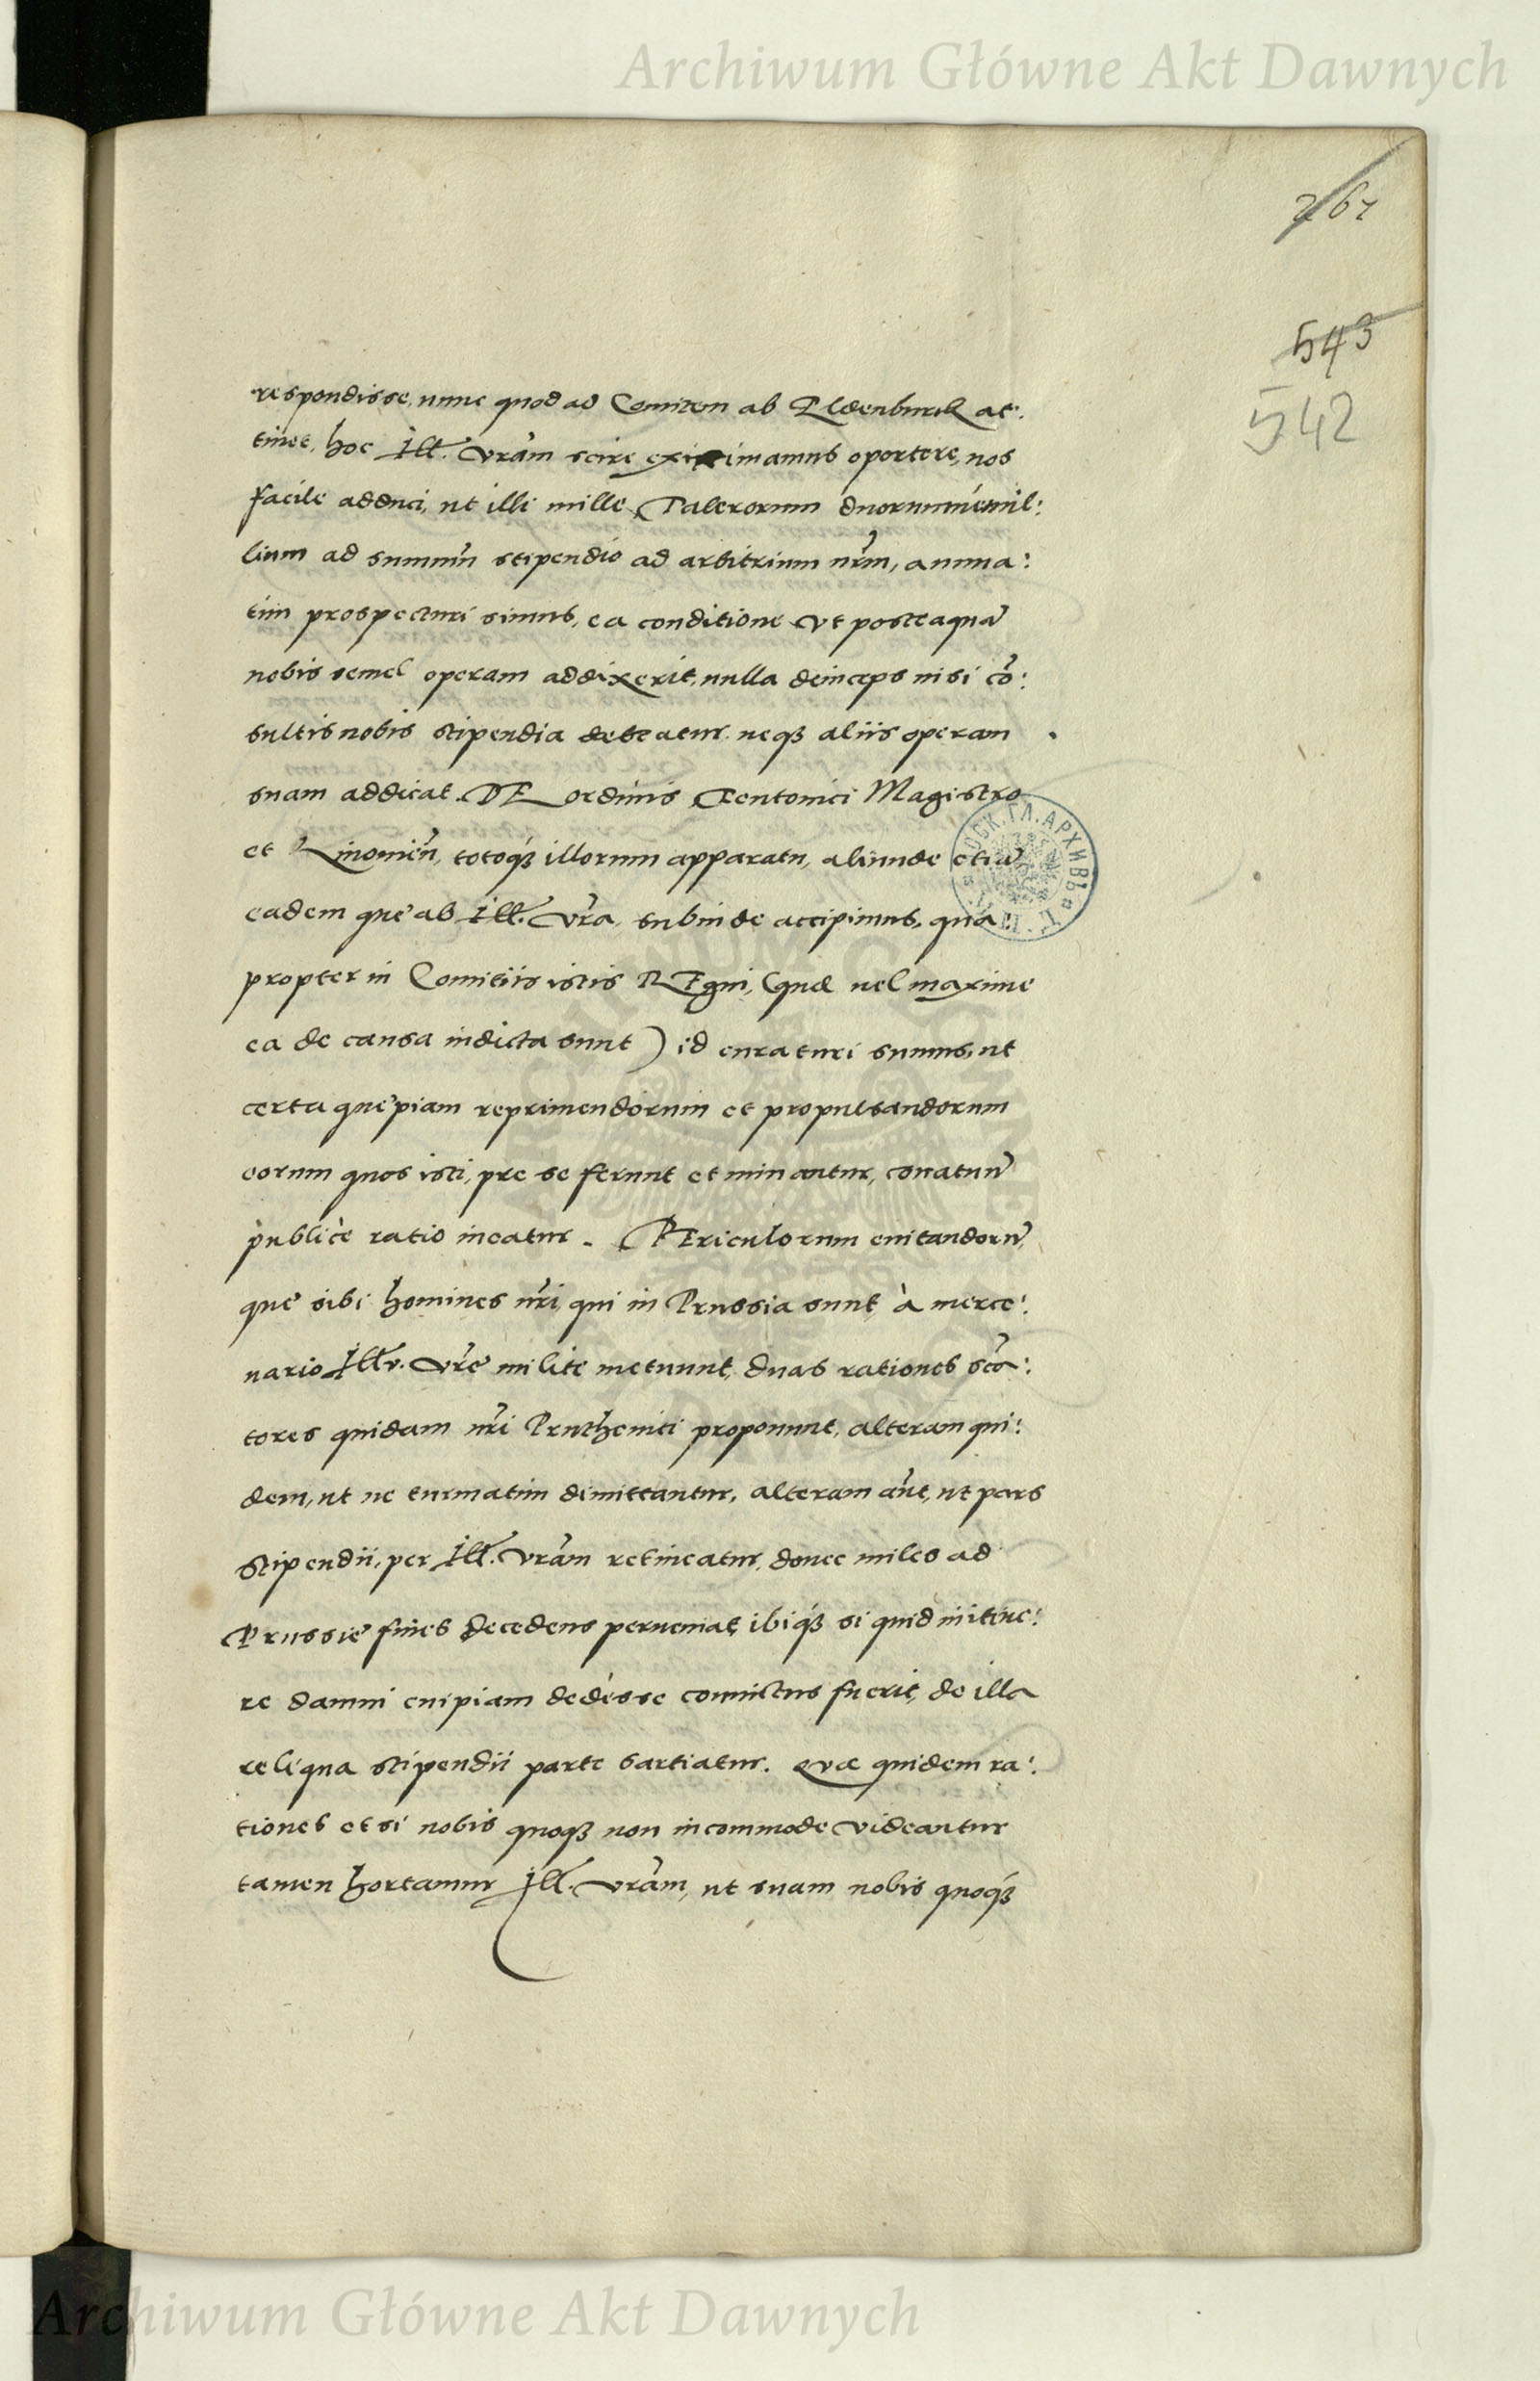 Archiwum Główne Akt Dawnych
267
543
542
respondisse, nunc quod ad Comitem ab Aldenburck at:
tinet, hoc Ill. Vrãm scire existimamus oportere, nos
facile adduci, ut illi mille Talerorum duorumue mil:
lium ad summũ stipendio ad arbitrium nrm̃, annua:
tim prospecturi simus, ea conditione vt posteaquã
nobis semel operam addixerit, nulla deinceps nisi cõ:
sultis nobis stipendia debeatur neqȝ aliis operam
suam addicat. DE ordinis Teutonici Magistro
et Liuonieñ, totoqȝ illorum apparatu, aliunde etiã
eadem que ab Ill. Vrã subinde accipimus, qua
propter in Comitiis istis REgni, (quæ uel maxime
ea de causa indicta sunt) id curaturi sumus, ut
certa quepiam reprimendorum et propulsandorum
eorum quos isti, pre se ferunt et minantur, conatuũ
publicè ratio ineatur. PEriculorum euitandorũ,
que sibi homines nrĩ, qui in Prussia sunt, à merce:
nario Illr. Vrẽ milite metuunt, duas rationes
tores quidam nrĩ Prutheniti proponunt, alteram qui:
dem, ut ne turmatim dimittantur, alteram aũt, ut pars
stipendii, per Ill. Vrãm retineatur, donec miles ad
Prussie fines decedens perueniat, ibiqȝ si quid in itine:
re damni cuipiam dedisse conuictus fuerit, de illa
reliqua stipendii parte sartiatur. Quæ quidem ra:
tiones etsi nobis quoqȝ non incommode videantur
tamen hortamur Ill. Vrãm, ut suam nobis quoqȝ
Archiwum Główne Akt Dawnych